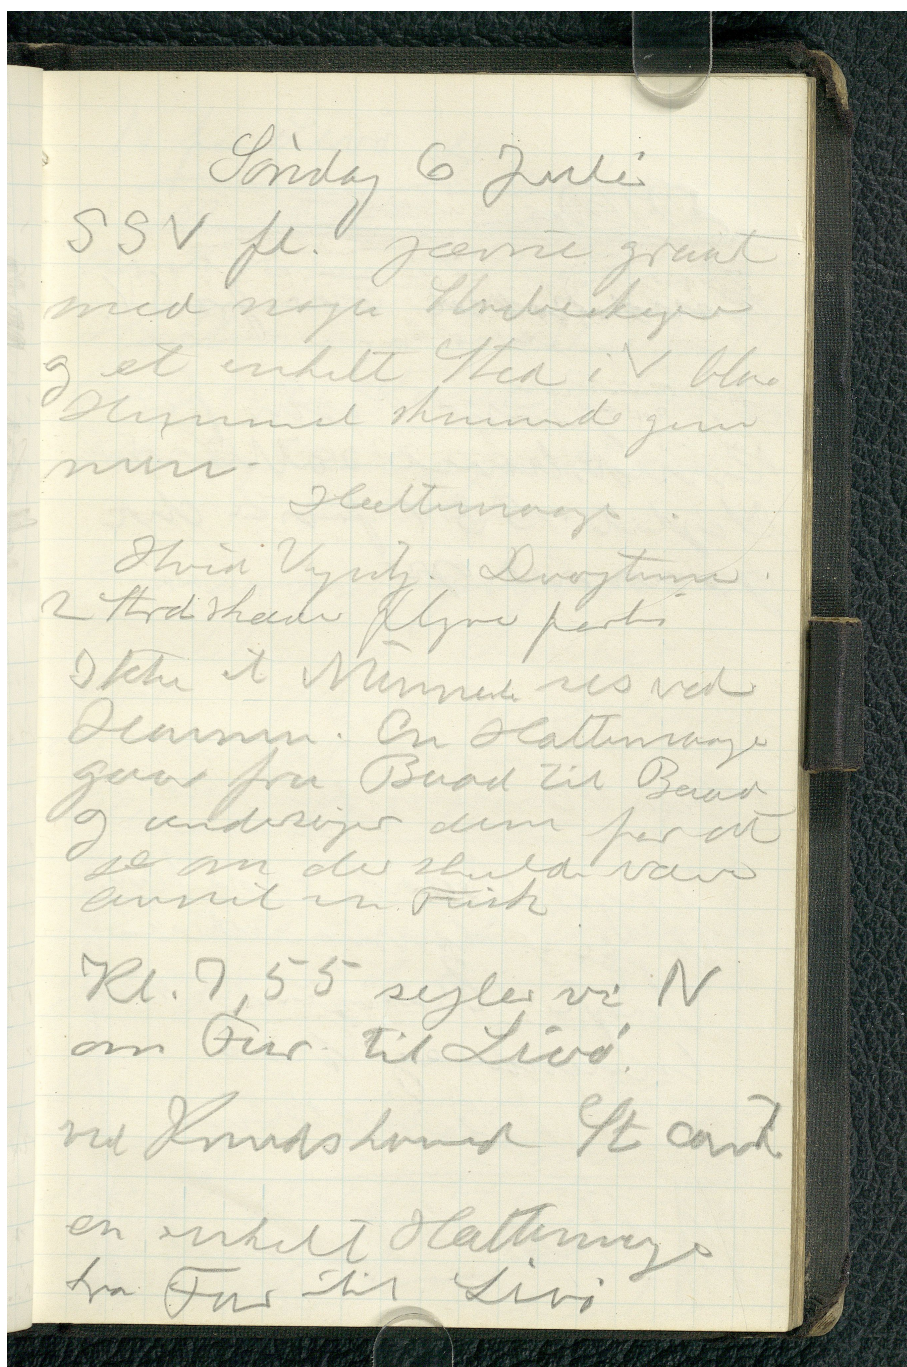 Søndag 6 Juli
SSV fl. jævnt graat
med nogen
og et enkelt Sted i V blaa
Himmel skinnende gen
nem.
Hættemaage.
Hvid Vipstj. Dværgterne.
2 Strdskader flyve forbi
Ikke et Menneske ses ved
Havnen. En Hættemaage
gaar fra Baad til Baad
og undersøger dem for at
se om der skulde være
levnet en Fisk
Kl. 7,55 sejler vi N
om Fur til Livø.
ved Knudshoved St. cant
en enkelt Hættemaage
fra Fur til Livø